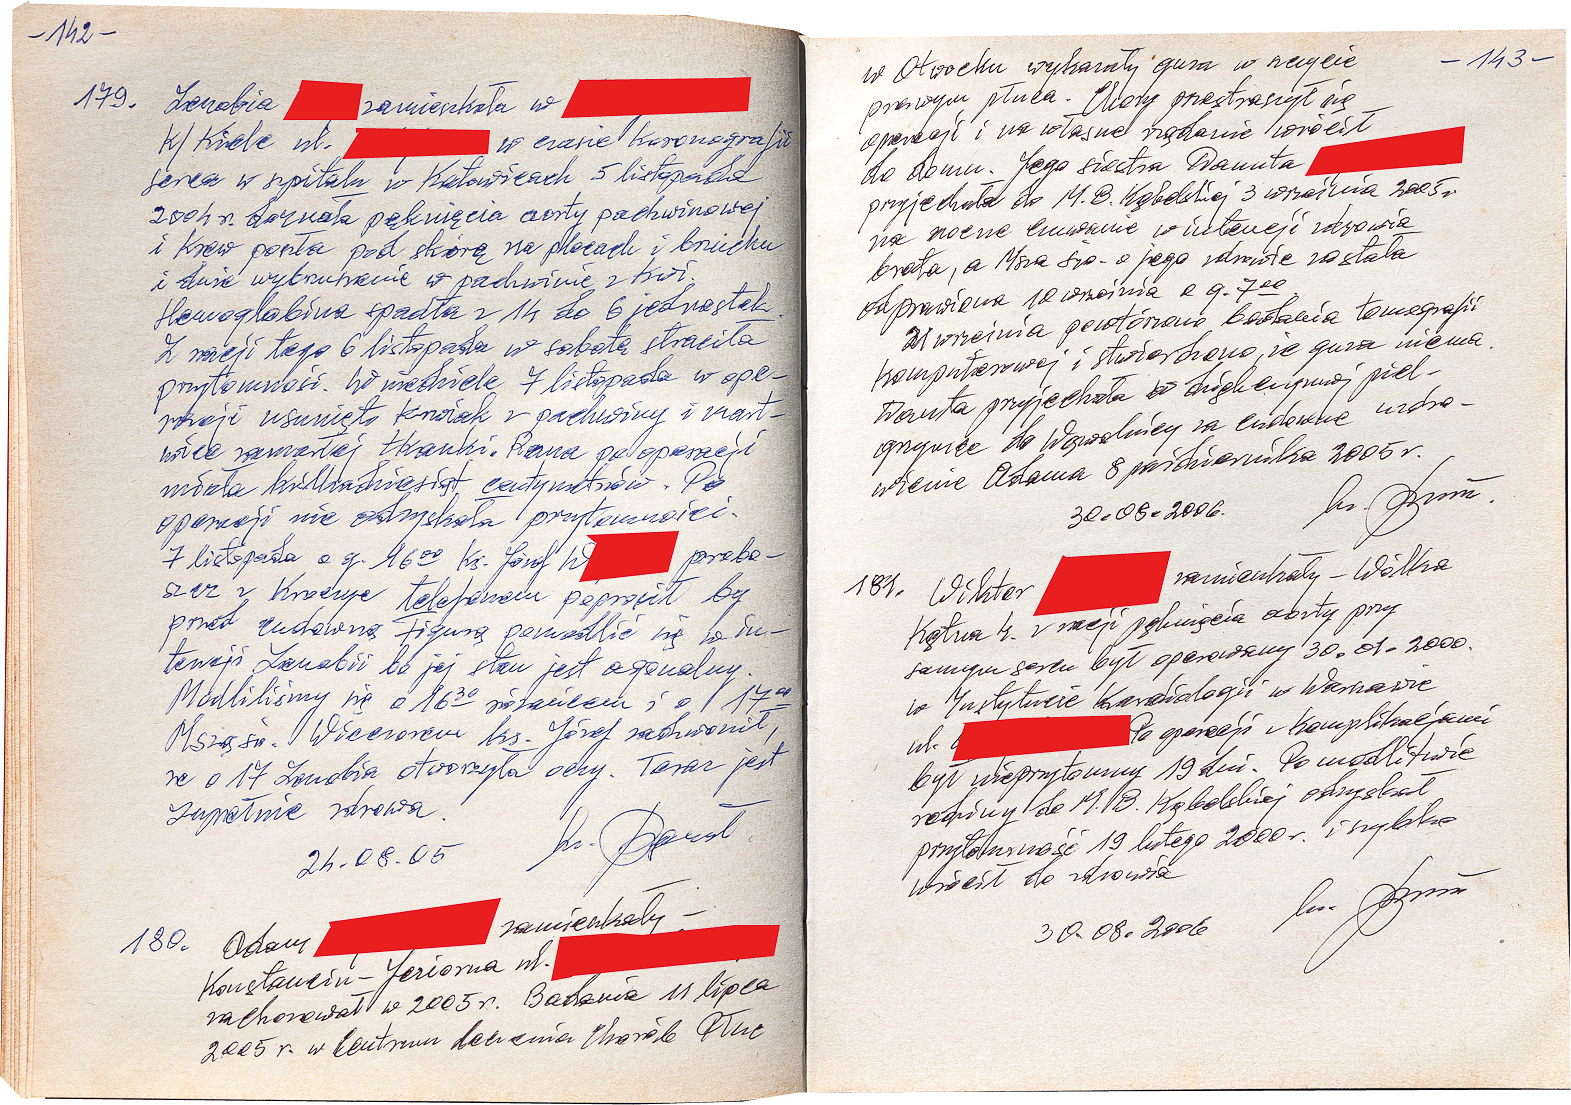 -142-
179. Zenobia zamieszkała w
k/Kielc ul. w czasie koronografii
serca w szpitalu w Katowicach 5 listopada
2004 r. doznała pęknięcia aorty pachwinowej
i krew poszła pod skórą na plecach i brzuchu
i duże wybrzuszenie w pachwinie z krwi.
Hemoglobina spadła z 14 do 6 jednostek.
Z racji tego 6 listopada w sobotę straciła
przytomność. W niedzielę 7 listopada w ope-
racji usunięto krwiak z pachwiny i mart-
wicę zamarłej tkanki. Rana po operacji
miała kilkadziesiąt centymetrów. Po
operacji nie odzyskała przytomności.
7 listopada o g. 16⁰⁰ ks. Józef W probo-
szcz z telefonem poprosił by
przed cudowną Figurą pomodlić się w in-
tencji Zenobii bo jej stan jest agonalny.
Modliliśmy się o 16³⁰ różańcem i o 17⁰⁰
Mszą św. Wieczorem ks. Józef zadzwonił,
że o 17 Zenobia otworzyła oczy. Teraz jest
zupełnie zdrowa.
24.08.05 ks.
180. Adam zamieszkały -
Konstancin-Jeziorna ul.
zachorował w 2005 r. Badania 11 lipca
2005 r. w Centrum Leczenia Chorób Płuc
-143-
w Otwocku wykazały guza w szczycie
prawym płuca. Chory przestraszył się
operacji i na własne żądanie wrócił
do domu. Jego siostra Danuta
przyjechała do M.B. Kębelskiej 3 września 2005 r
na nocne czuwanie w intencji zdrowia
brata, a Msza św. o jego zdrowie została
odprawiona 10 września o g. 7⁰⁰.
21 września powtórzono badania tomografii
komputerowej i stwierdzono, że guza niema.
Danuta przyjechała w dziękczynnej piel-
grzymce do Wąwolnicy za cudowne uzdro-
wienie Adama 8 października 2005 r.
30.08.2006. ks.
181. Wiktor zamieszkały - Wólka
Kątna 4. z racji pęknięcia aorty przy
samym sercu był operowany 30.01.2000.
w Instytucie Kardiologii w Warszawie
ul. Po operacji z komplikacjami
był nieprzytomny 19 dni. Po modlitwie
rodziny do M.B. Kębelskiej odzyskał
przytomność 19 lutego 2000 r. i szybko
wrócił do zdrowia
30.08.2006 ks.